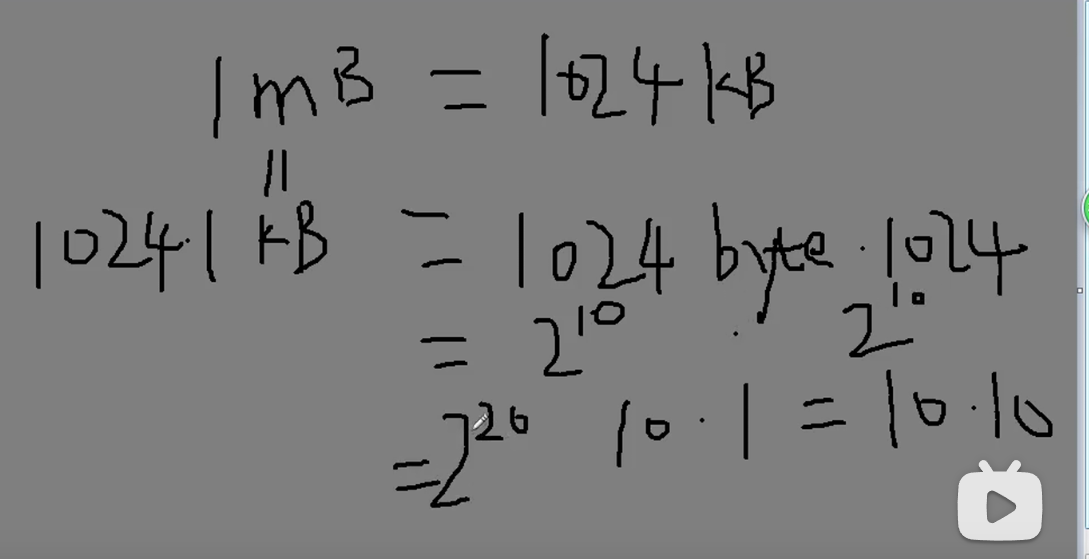 1 mB = 1024 kB
=
1024·1 kB = 1024 byte · 1024
= 2^10 · 2^10
= 2^20 10 · 1 = 10 · 10